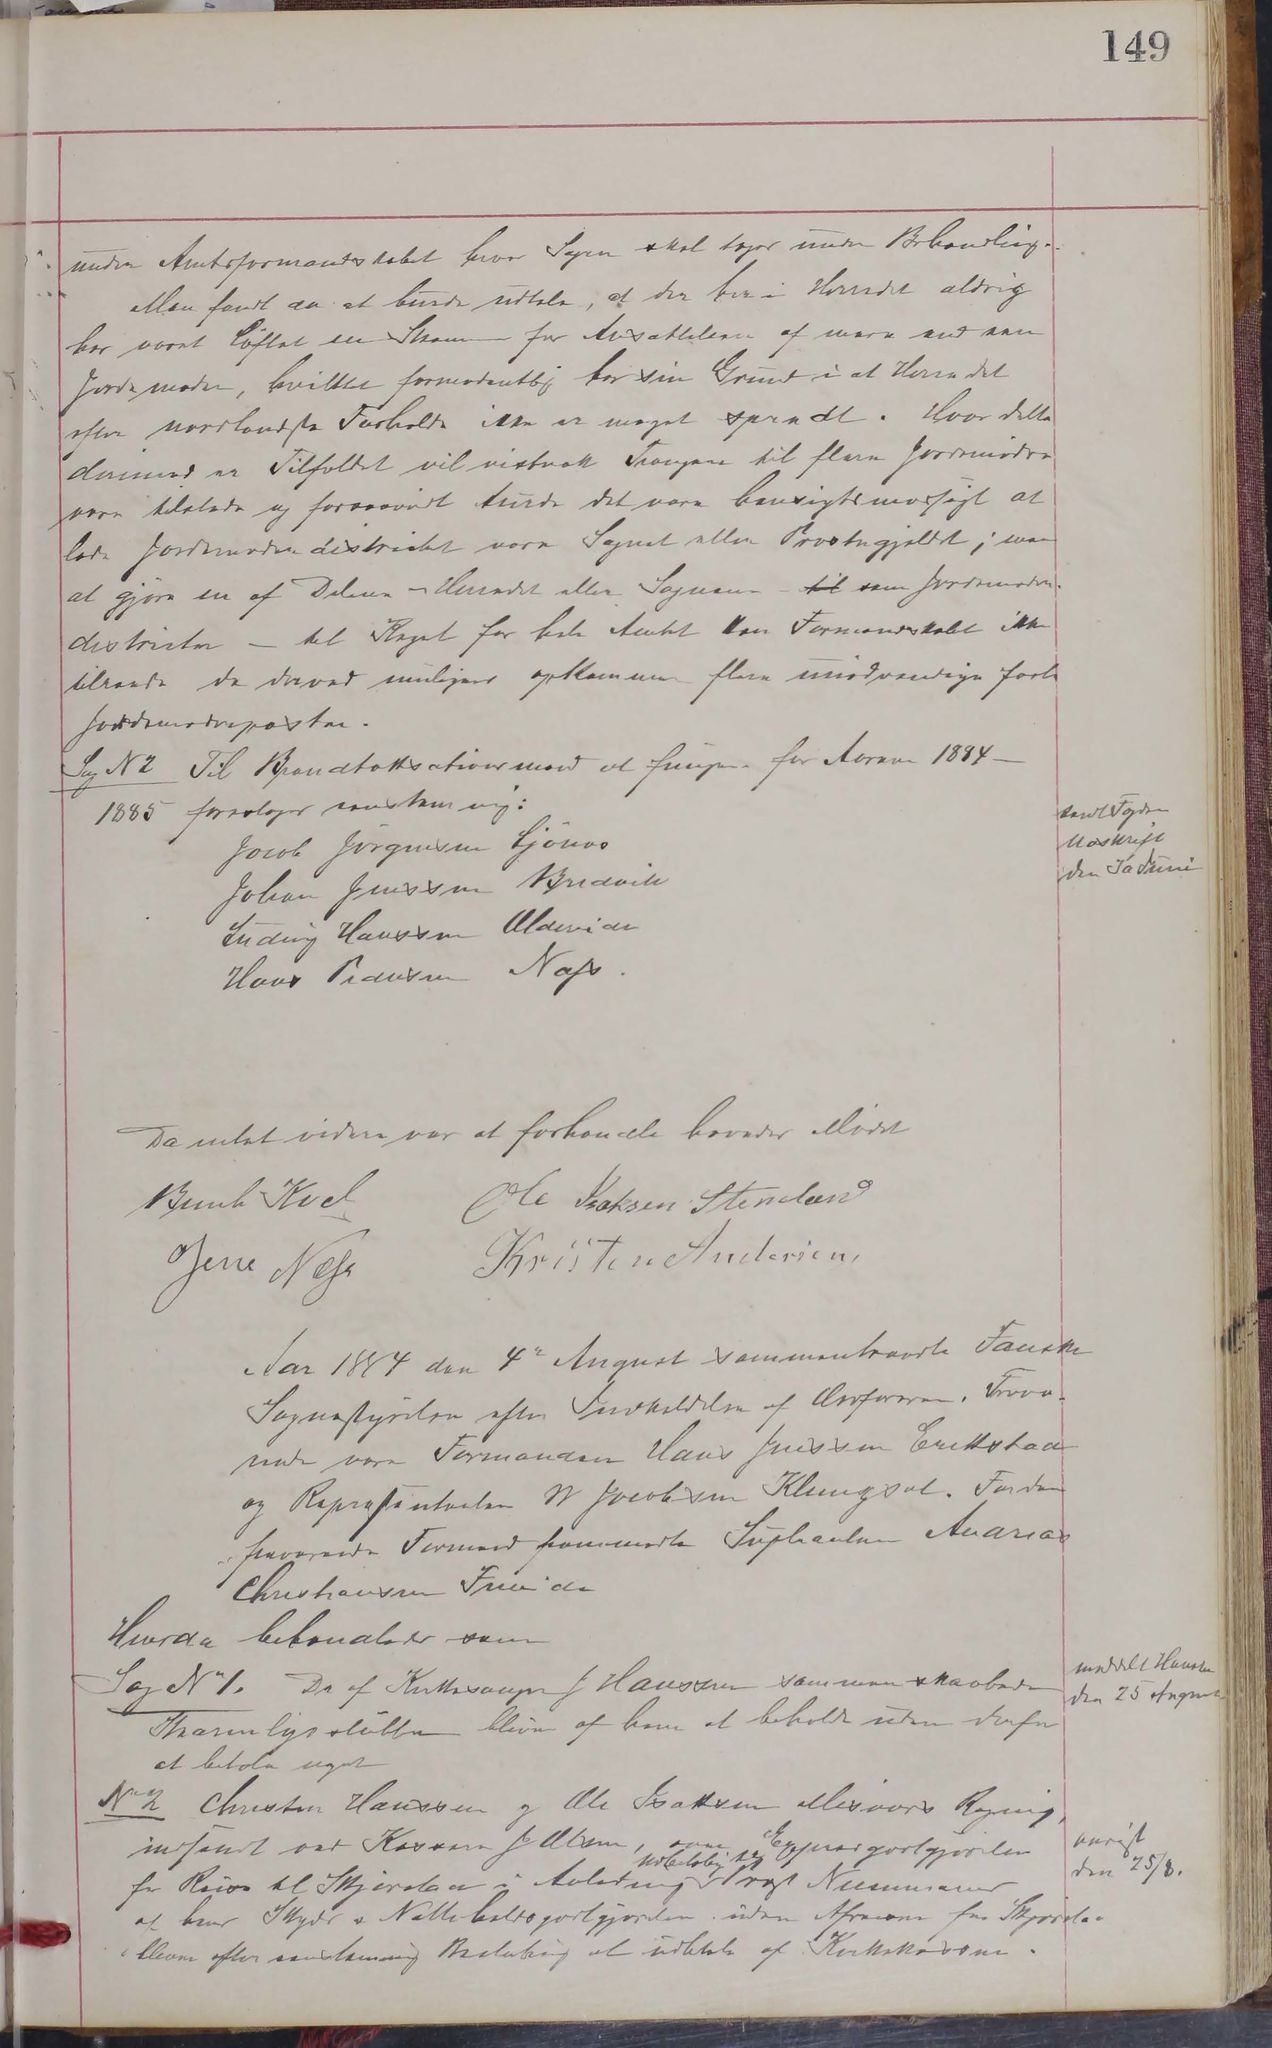 149
under Amtsformandskabet hvor Sagen skal tages under Behandling.
Man fandt da at burde udtale, at der her i Herredet aldrig
har været løftet en Stemme for Ansættelsen af mere end een
Jordemoder, hvilket formodentlig har sin Grund i at Herredet
efter nordlandske Forholde ikke er meget spredt. Hvor dette
derimod er Tilfældet vil vistnok Trangen til flere Jordemødre
være tilstede og forsaavidt turde det være hensigtsmæssigt at
lade Jordemoderdistriktet være Sognet eller Præstegjeldet; men
at gjøre en af Delene - Herredet eller Sognene - til som Jordemoder-
distrikter - til Regel for hele Amtet kan Formandskabet ikke
tilraade da derved muligens opkommer flere unødvendige faste
Jordemoderposter.
Sag N 2 Til Brandtakstationsmænd at fungere for Aarene 1884 -
1885 foreslages eenstemmig:
Jacob Jørgensen
Johan Jenssen Bredvik
Ludvig Hanssen Alvenes
Hans Pedersen Næss.
sendt Fogden
Udskrift
den Juni
Da intet videre var at forhandle hævedes Mødet
Bernh Kvel Ole Isaksen Stenland
Jens Næss Kristen Andersen,
Aar 1884 den 4de August sammentraadte Fauske
Sognestyrelse efter Indkaldelse af Ordføreren. Fravæ-
rende vare Formanden Hans Jenssen Erikstad
og Repræsentanten N Jacobsen Klungset. For den
fraværende Formand fremmødte Suppleanten Andreas
Christiansen
Hvorda behandledes som
Sag No 1. De af Kirkesanger J Hanssen sammenskrabede
bliver af ham at beholde uden derfor
at betale noget
meddelt Hanssen
den 25 August
No 2 Christen Hanssen og Ole Isaksen Regning,
indsendt ved Kasserer J Olsen, som Expresgodtgjørelse
for Reise til Skjerstad i Anledning Præst Nummemer
at hver Skyds & Natteholdsgodtgjørelse uden
bliver efter eenstemmig Beslutning at udbetale af Kirkekassen.
anvist
den 25/8.